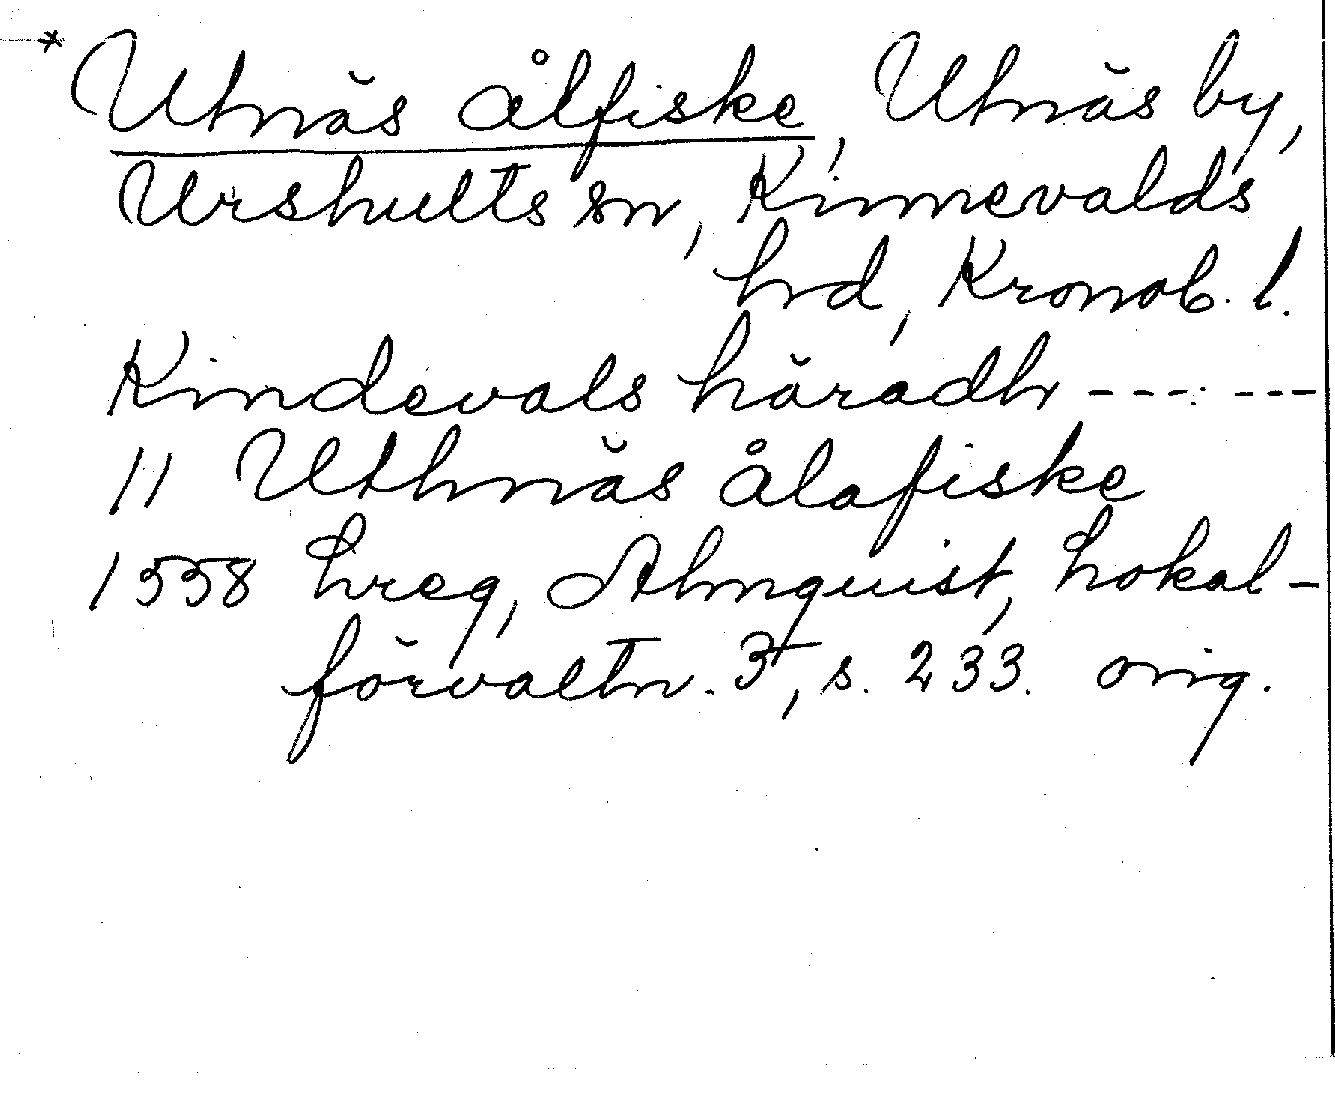 * Utnäs ålfiske, Utnäs by,
Urshults sn, Kinnevalds
hrd, Kronob. l.
Kindevals häradh - - - - - -
11 Uthnäs ålafiske
1558 hreg, Almquist, Lokal-
förvaltn. 3, s. 233. orig.